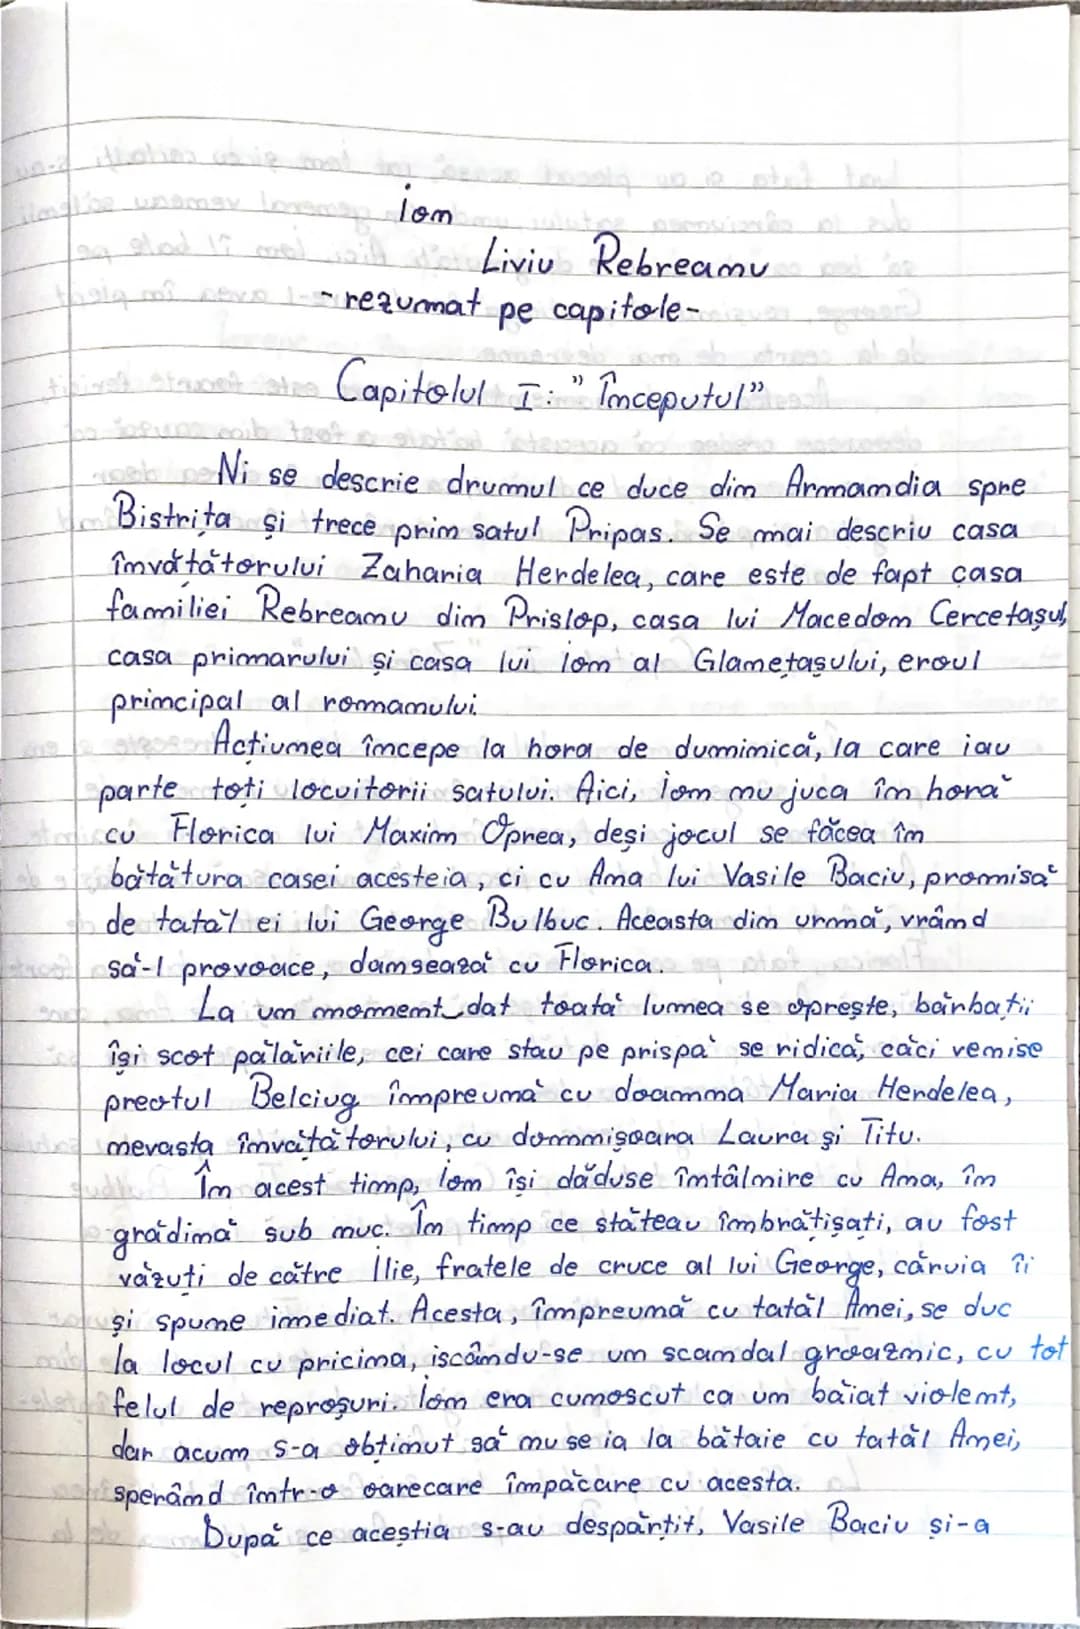 Ion
Liviu Rebreanu
- rezumat pe capitole-
Capitolul I: "Începutul"
Ni se descrie drumul ce duce din Armandia spre
Bistrița și trece prin satul Pripas. Se mai descriu casa
învățătorului Zaharia Herdelea, care este de fapt casa
familiei Rebreanu din Prislop, casa lui Macedon Cercetașul,
casa primarului și casa lui Ion al Glanetașului, eroul
principal al romanului.
Acțiunea începe la hora de duminică, la care iau
parte toți locuitorii satului. Aici, Ion nu juca în horă
cu Florica lui Maxim Oprea, deși jocul se făcea în
bătătura casei acesteia, ci cu Ana lui Vasile Baciu, promisă
de tatăl ei lui George Bulbuc. Aceasta din urmă, vrând
să-l provoace, dansează cu Florica.
La un moment dat toată lumea se oprește, bărbații
își scot pălăriile, cei care stau pe prispă se ridică, căci venise
preotul Belciug împreună cu doamna Maria Herdelea,
nevasta învățătorului, cu domnișoara Laura și Titu.
În acest timp, Ion își dăduse întâlnire cu Ana, în
grădină sub nuc. În timp ce stăteau îmbrățișați, au fost
văzuți de către Ilie, fratele de cruce al lui George, căruia îi
și spune imediat. Acesta, împreună cu tatăl Anei, se duc
la locul cu pricina, iscându-se un scandal groaznic, cu tot
felul de reproșuri. Ion era cunoscut ca un băiat violent,
dar acum s-a obținut să nu se ia la bătaie cu tatăl Anei,
sperând într-o oarecare împăcare cu acesta.
După ce aceștia s-au despărțit, Vasile Baciu și-a